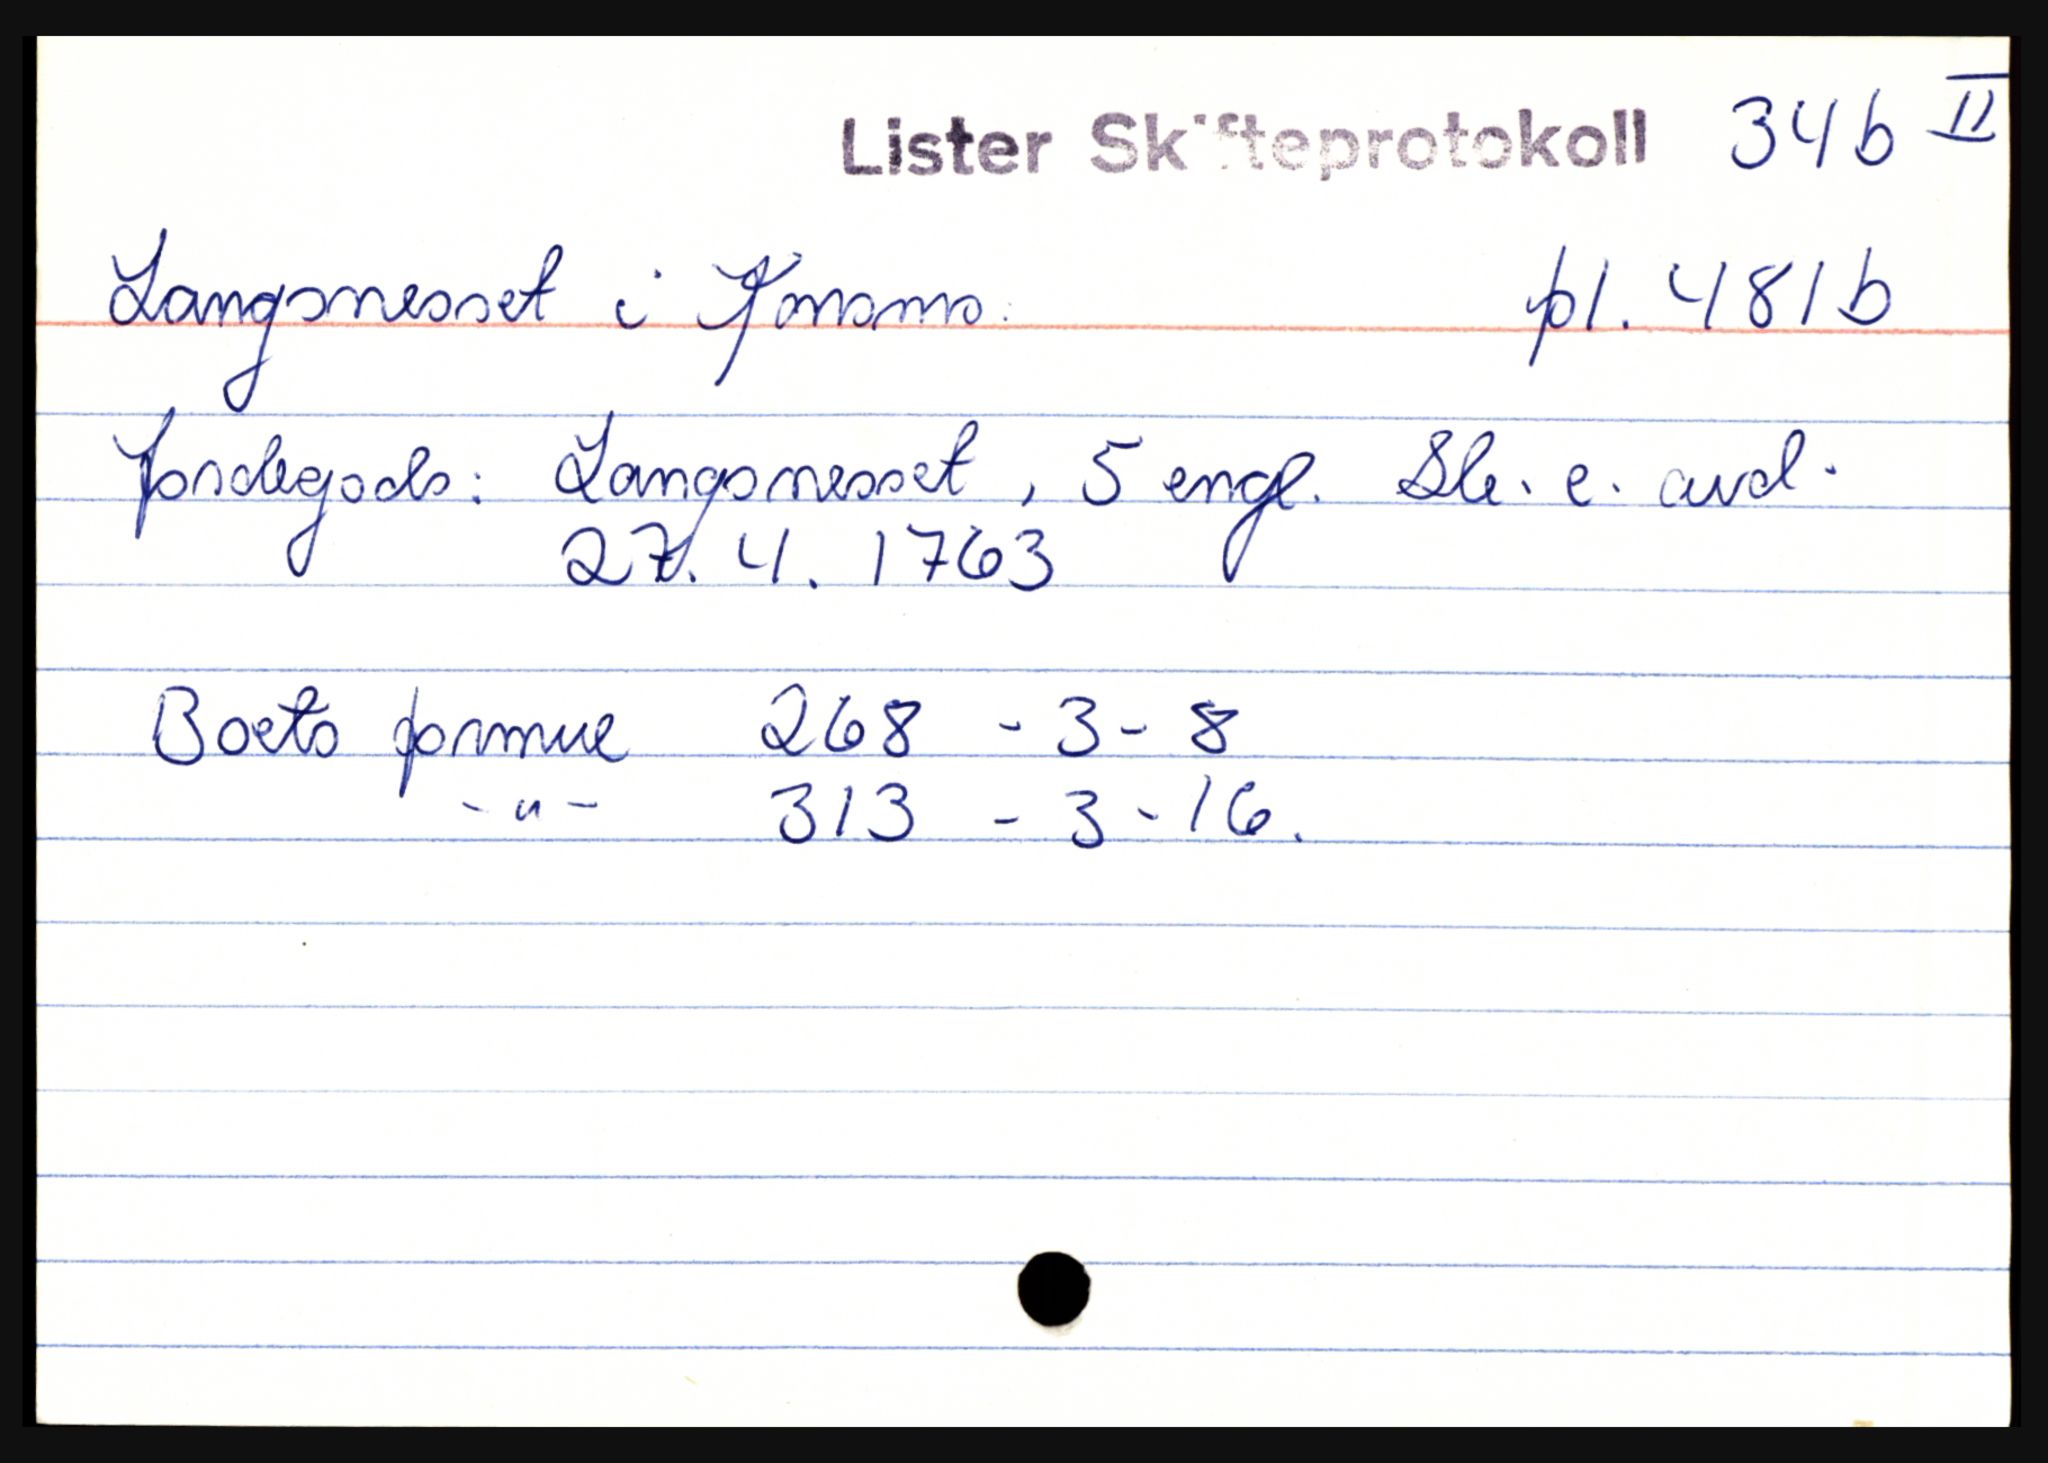 Lister Skifteprotokoll 34b II
Langsnesset i pl. 481b
Jordegods: Langsnesset, 5 engl. Sk. e. avd.
27. 4. 1763
Boets formue 268 - 3 - 8
- " - 313 - 3 - 16.